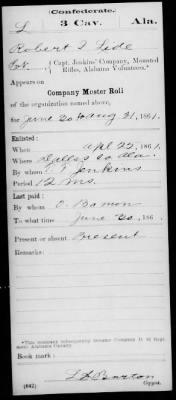 (Confederate.)
L 3 Cav. Ala.
Robert I Lide
Capt. Jenkins' Company, Mounted
Rifles, Alabama Volunteers.*
Appears on
Company Muster Roll
of the organization named above,
for June 20 to Aug 31, 1861.
Enlisted:
When Apl 22, 1861.
Where Dallas Co Ala.
By whom Jenkins
Period 12 ms.
Last paid:
By whom
To what time June 20, 186
Present or absent Present
Remarks:
*This company subsequently became Company
Book mark:
(642) Barton
Copyist.